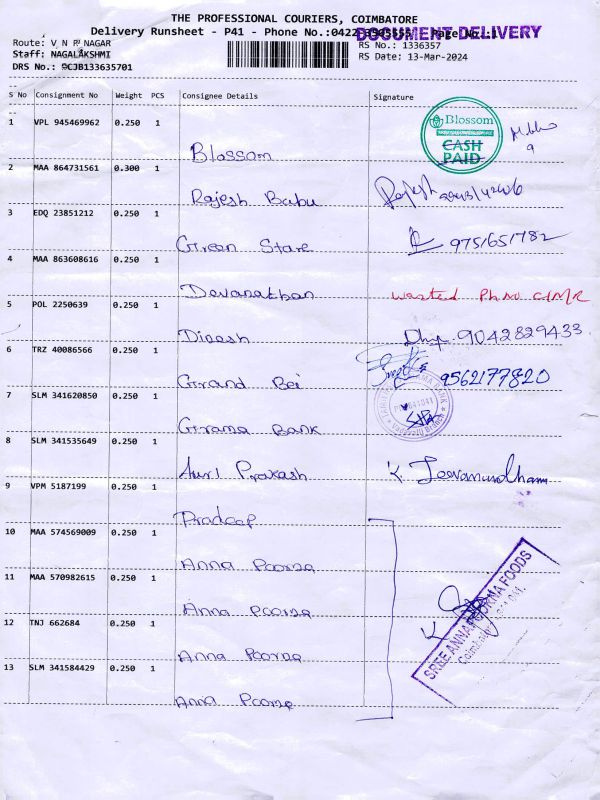 THE PROFESSIONAL COURIERS, COIMBATORE
Delivery Runsheet - P41 - Phone No.:0422 3505555 Page No.:1
DOCUMENT DELIVERY
Route: V N R NAGAR
RS No.: 1336357
Staff: NAGALAKSHMI
RS Date: 13-Mar-2024
DRS No.: DCJB133635701
S No Consignment No Weight PCS Consignee Details Signature
1 VPL 945469962 0.250 1
Blossom
Blossom
CASH
PAID
2 MAA 864731561 0.300 1
Rajesh Babu
3 EDQ 23851212 0.250 1
Green Stare
9751651782
4 MAA 863608616 0.250 1
Devanathan
wanted Ph No
5 POL 2250639 0.250 1
Dinesh
9042829433
6 TRZ 40086566 0.250 1
Grand Bei
9562177820
7 SLM 341620850 0.250 1
Grama Bank
8 SLM 341535649 0.250 1
Prakash
K. Jeevanandham
9 VPM 5187199 0.250 1
Pradeep
10 MAA 574569009 0.250 1
Anna Poorna
11 MAA 570982615 0.250 1
Anna Poorna
12 TNJ 662684 0.250 1
Anna Poorna
SREE ANNAPOORNA FOODS
13 SLM 341584429 0.250 1
Anna Poorna